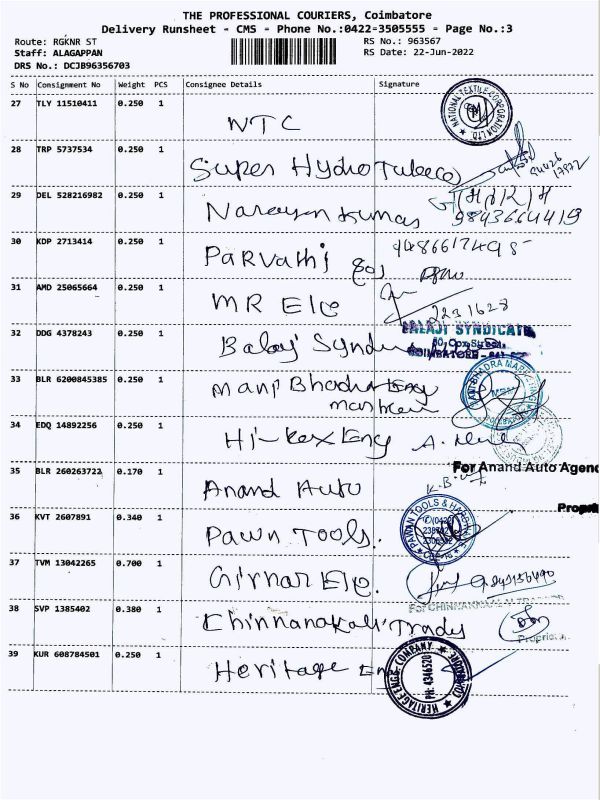 THE PROFESSIONAL COURIERS, Coimbatore
Delivery Runsheet - CMS - Phone No.:0422=3505555 - Page No.:3
Route: RGKNR ST
Staff: ALAGAPPAN
DRS No.: DCJB96356703
RS No.: 963567
RS Date: 22-Jun-2022
S No Consignment No Weight PCS Consignee Details Signature
27 TLY 11510411 0.250 1 NTC
NATIONAL TEXTILE CORPORATION LTD.
28 TRP 5737534 0.250 1 Super Hydro Tubes
29 DEL 528216982 0.250 1 Narayan Kumar 9843664419
30 KDP 2713414 0.250 1 Parvathi
31 AMD 25065664 0.250 1 MR Ele
2231628
32 DDG 4378243 0.250 1 Balaji Syndi
BALAJI SYNDICATE
COIMBATORE
33 BLR 6200845385 0.250 1 Mani Bhadra
34 EDQ 14892256 0.250 1 Hi-Rex Eng
For Anand Auto Agenc
35 BLR 260263722 0.170 1 Anand Auto
Propri
36 KVT 2607891 0.340 1 Pawn Tools.
PAWAN TOOLS &
37 TVM 13042265 0.700 1 Girnar Ele.
38 SVP 1385402 0.380 1 Chinnanakali Trady
Proprietor
39 KUR 608784501 0.250 1 Heritage En
HERITAGE ENGG. COMPANY
PH: 4346520